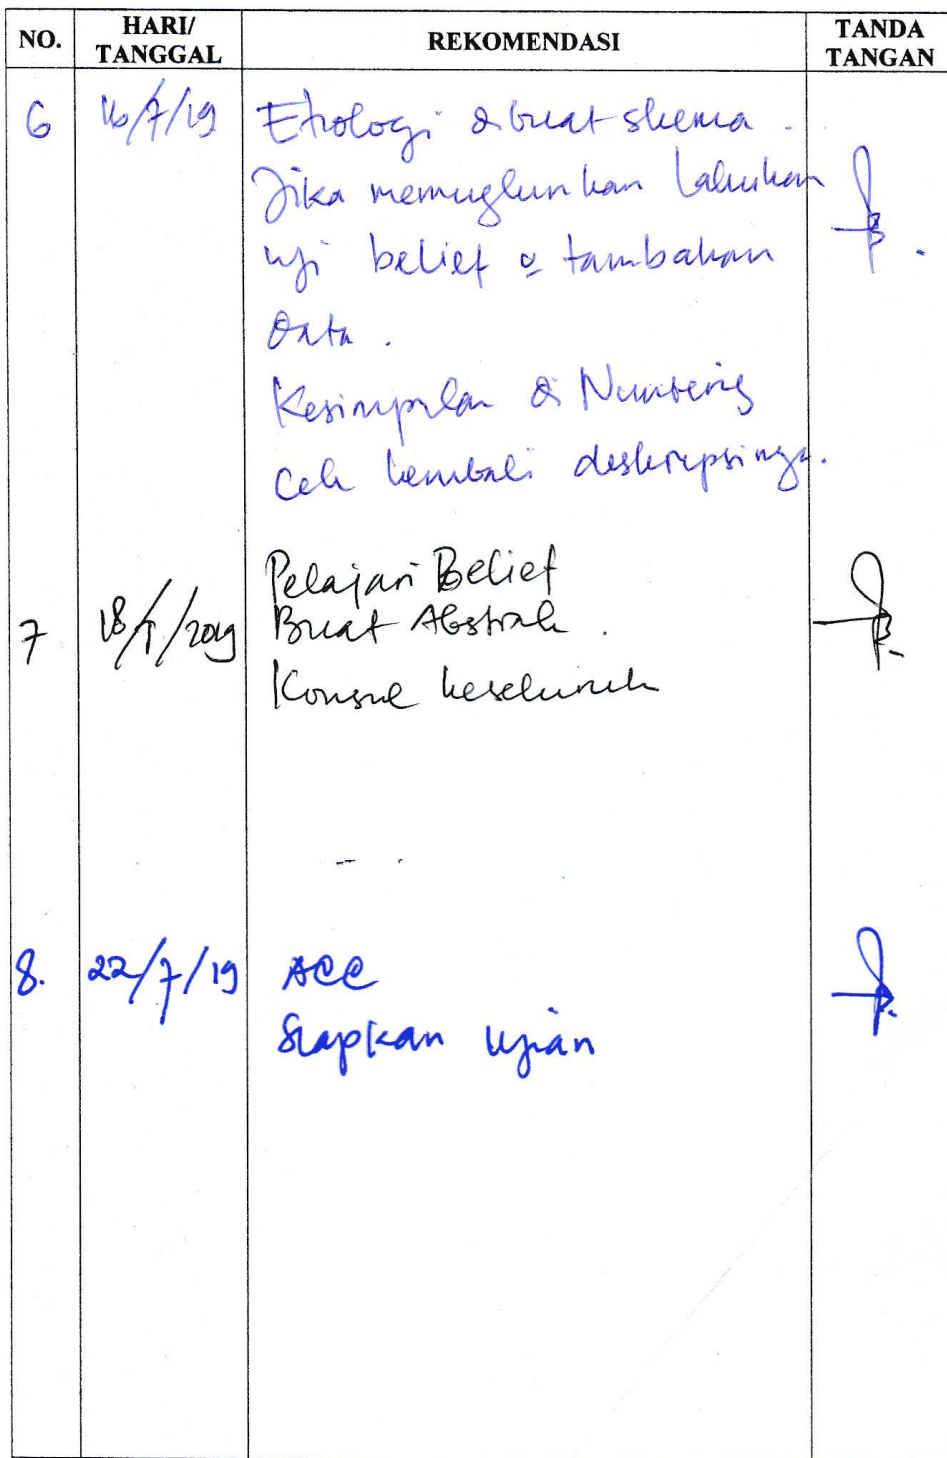 NO. HARI/ TANGGAL REKOMENDASI TANDA TANGAN
6 16/7/19 Etiologi dibuat skema.
Jika memungkinkan lakukan
uji belief & tambahan
data.
Kesimpulan di Numbering
Cek kembali deskripsinya.
Pelajari Belief
7 18/7/2019 Buat Abstrak.
Konsul keseluruh
8. 22/7/19 ACC
Siapkan ujian